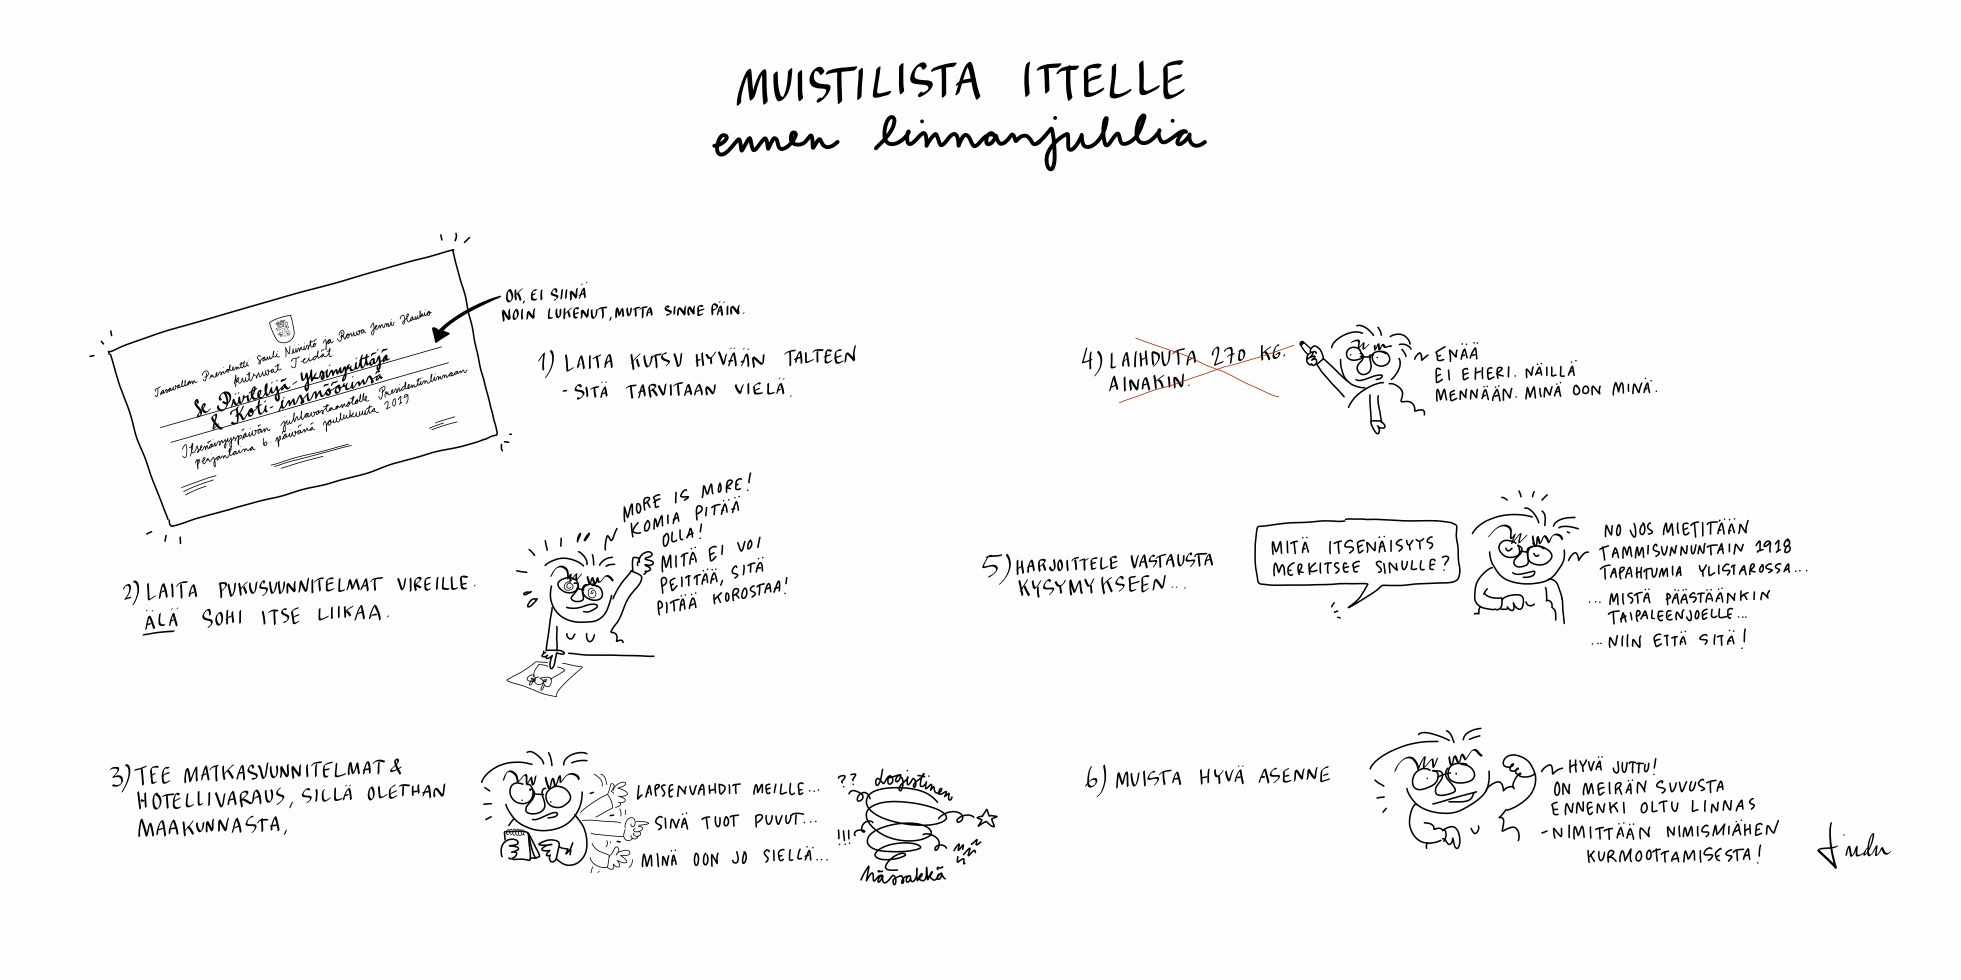 MUISTILISTA ITTELLE
ennen linnanjuhlia
Tasavallan Presidentti Sauli Niinistö ja Rouva Jenni Haukio
kutsuvat Teidät
Se Piirtelijä-Yksinyrittäjä
& Koti-insinöörinsä
Itsenäisyyspäivän juhlavastaanotolle Presidentinlinnaan
perjantaina 6. päivänä joulukuuta 2019
OK, EI SIINÄ
NOIN LUKENUT, MUTTA SINNE PÄIN.
1) LAITA KUTSU HYVÄÄN TALTEEN
- SITÄ TARVITAAN VIELÄ.
2) LAITA PUKUSUUNNITELMAT VIREILLE.
ÄLÄ SOHI ITSE LIIKAA.
MORE IS MORE!
KOMIA PITÄÄ
OLLA!
MITÄ EI VOI
PEITTÄÄ, SITÄ
PITÄÄ KOROSTAA!
3) TEE MATKASUUNNITELMAT &
HOTELLIVARAUS, SILLÄ OLETHAN
MAAKUNNASTA,
LAPSENVAHDIT MEILLE...
SINÄ TUOT PUVUT...
MINÄ OON JO SIELLÄ...
??
logistinen
!!!
hässäkkä
4) LAIHDUTA 270 KG.
AINAKIN.
ENÄÄ
EI EHERI. NÄILLÄ
MENNÄÄN. MINÄ OON MINÄ.
5) HARJOITTELE VASTAUSTA
KYSYMYKSEEN...
MITÄ ITSENÄISYYS
MERKITSEE SINULLE?
NO JOS MIETITÄÄN
TAMMISUNNUNTAIN 1918
TAPAHTUMIA YLISTAROSSA...
... MISTÄ PÄÄSTÄÄNKIN
TAIPALEENJOELLE...
... NIIN ETTÄ SITÄ!
6) MUISTA HYVÄ ASENNE
HYVÄ JUTTU!
ON MEIRÄN SUVUSTA
ENNENKI OLTU LINNAS
- NIMITTÄÄN NIMISMIÄHEN
KURMOOTTAMISESTA!